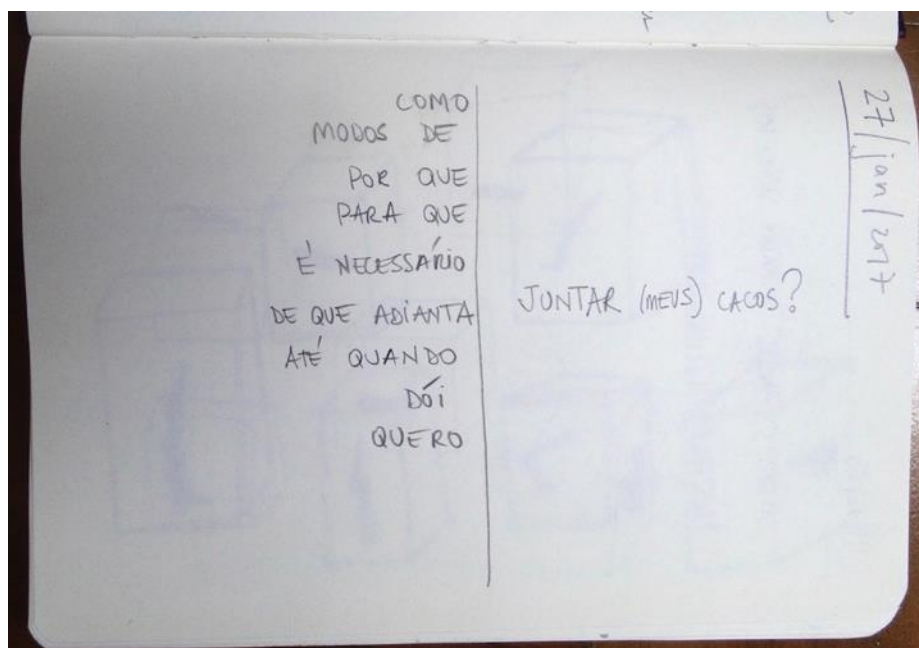 COMO
MODOS DE
POR QUE
PARA QUE
É NECESSÁRIO
DE QUE ADIANTA
ATÉ QUANDO
DÓI
QUERO
JUNTAR (MEUS) CACOS?
27/jan/2017